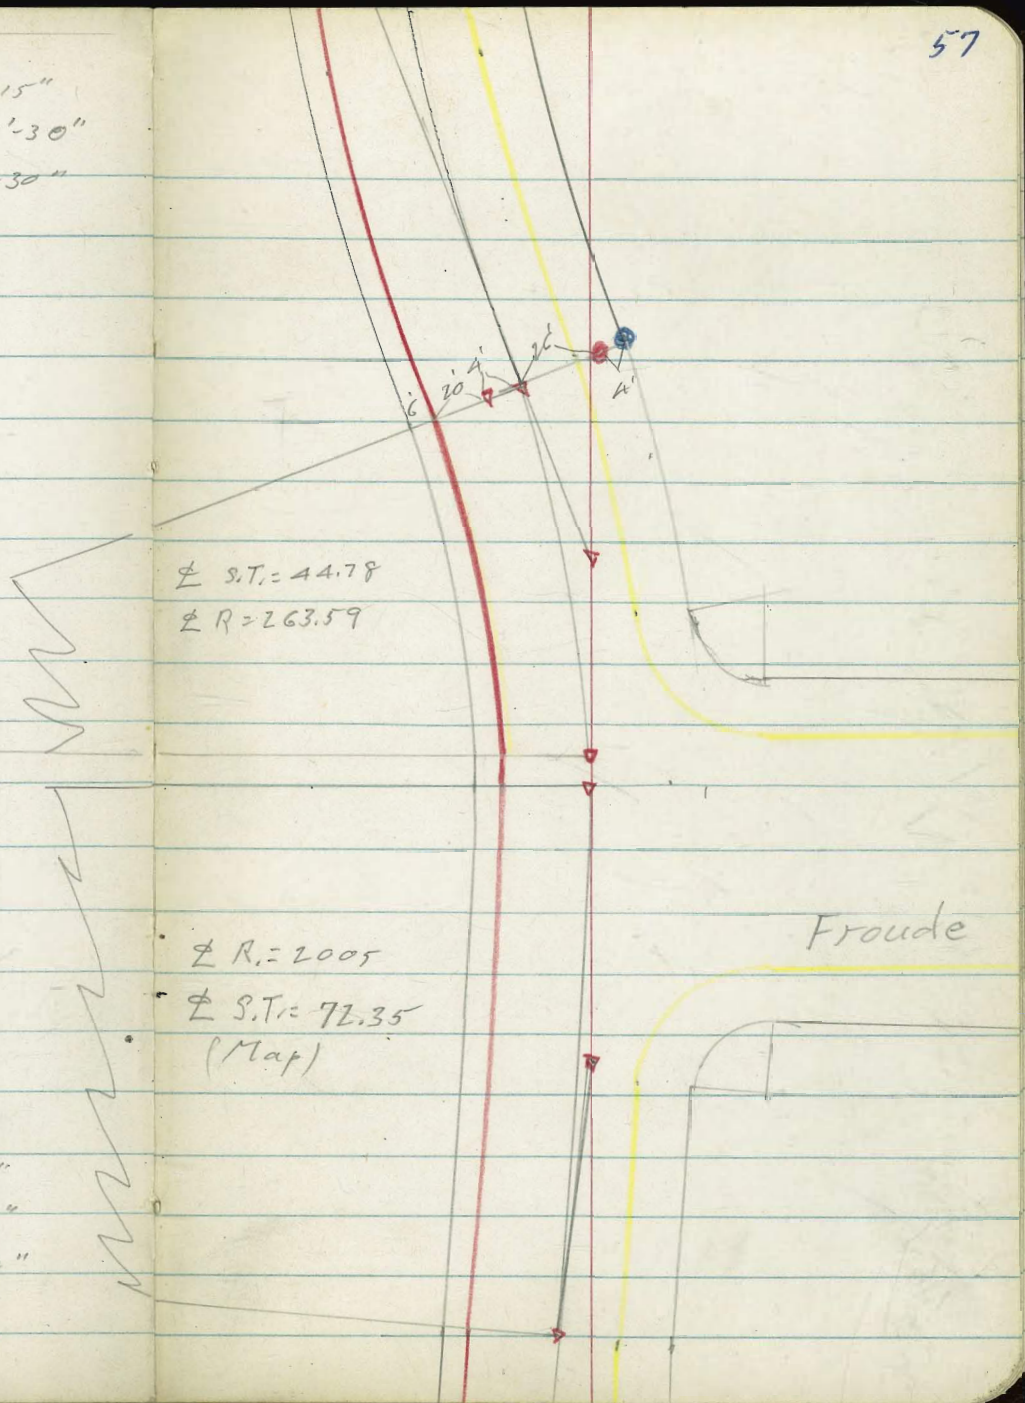 57
15"
'-30"
30"
26'
4'
20'
6'
4'
℄ S.T. = 44.78
℄ R = 263.59
Froude
℄ R. = 2005
℄ S.T. = 72.35
(Map)